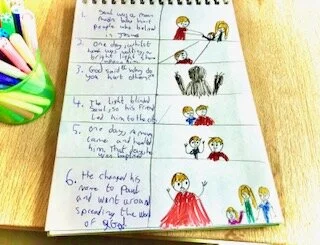 1. Saul was a mean
man who hurt
people who believed
in Jesus
2. One day, whilst
Saul was walking a
bright light shone
3. God said "Why do
you hurt others?"
4. The light blinded
Saul, so his friend
led him to the city
5. One day, a man
came and healed
him. That day he
was baptised
6. He changed his
name to Paul
and went around
spreading the word
of God.